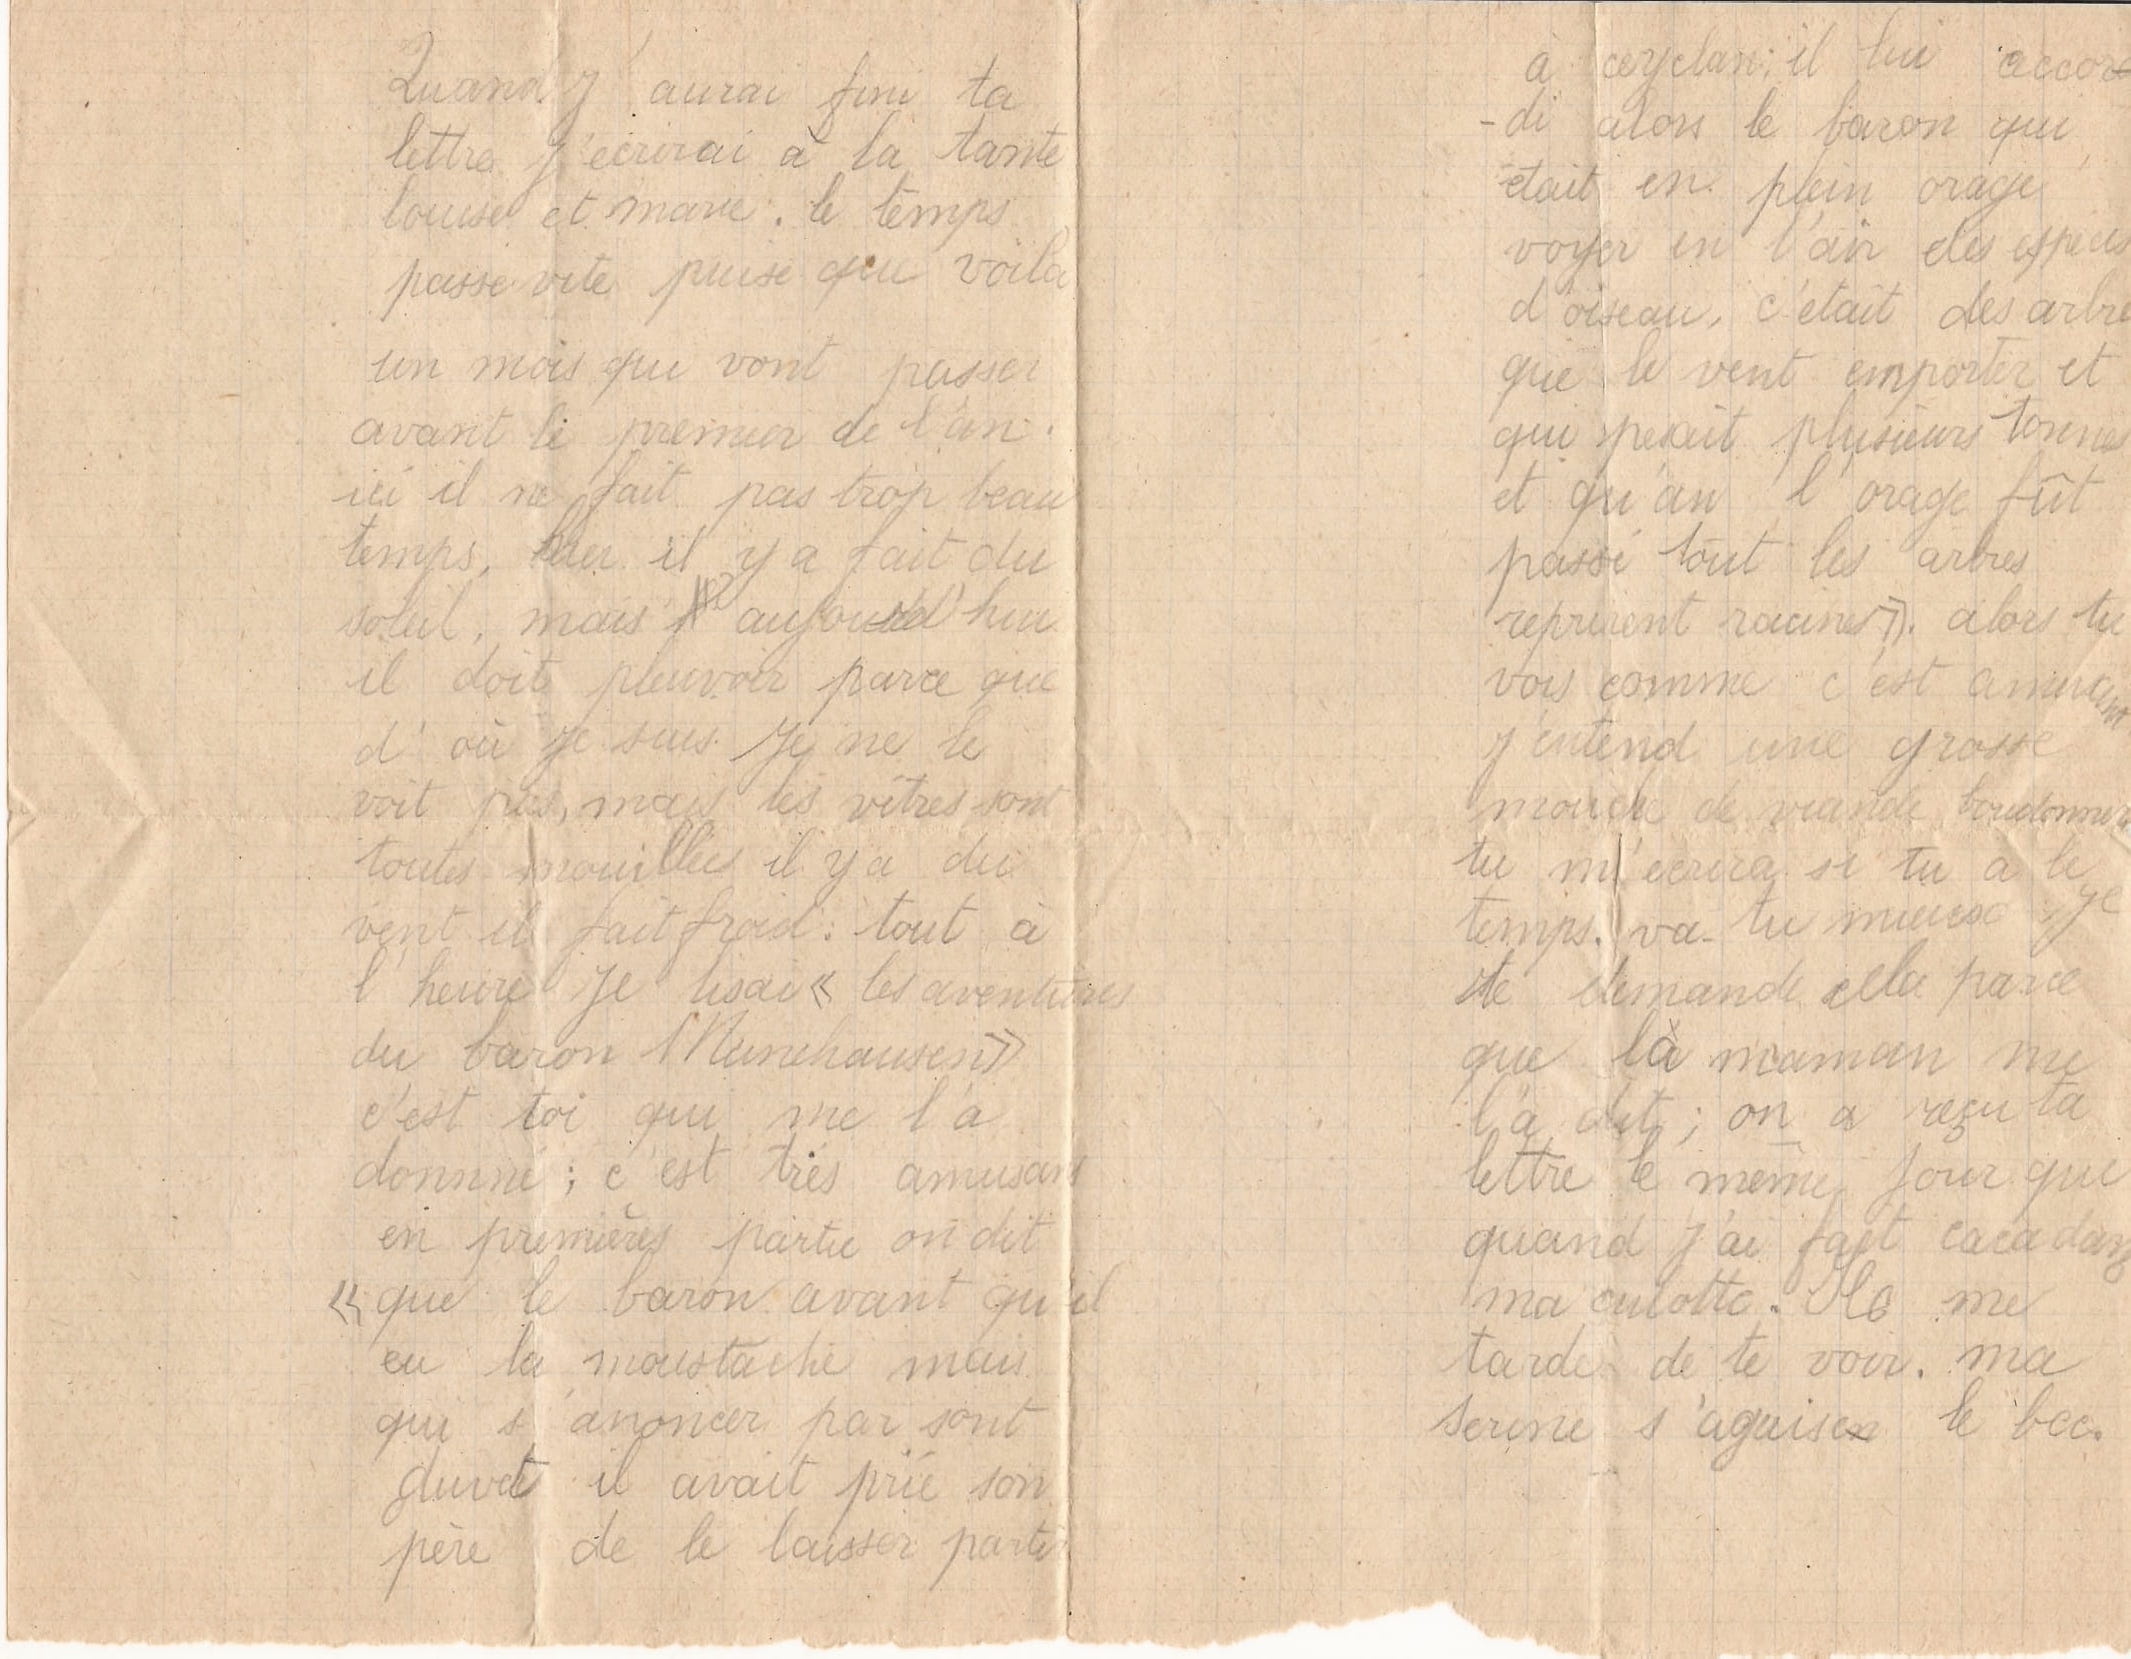 Quand j'aurai fini ta
lettre j'ecrirai à la tante
louise et marie. le temps
passe vite puise que voila
un mois qui vont passer
avant le premier de l'an.
ici il ne fait pas trop beau
temps, hier il y a fait du
soleil, mais aujourd'hui
il doit pleuvoir parce que
d'où je suis je ne le
voit pas, mais les vitres sont
toutes mouillées il y a du
vent il fait froid. tout à
l'heure je lisai « les aventures
du baron Munchausen »
c'est toi qui me l'a
donnné ; c'est très amusant
en premières partie on dit
« que le baron avant qu'il
eu la moustache mais
qui s'anoncer par sont
duvet il avait prié son
père de le laisser partir
à ceyclan; il lui accor
-di alors le baron qui
était en plein orage
voyer en l'air des especes
d'oiseau, c'etait des arbre
que le vent emporter et
qui pesait plusieurs tonnes
et qu'an l'orage fût
passé tout les arbres
reprirent racines ». alors tu
vois comme c'est amusant
j'entend une grosse
mouche de viande bourdonner
tu m'ecrira si tu a le
temps. va-tu mieux je
te demande cela parce
que là maman me
l'a dit ; on a reçu ta
lettre le même jour que
quand j'ai fait caca dans
ma culotte. Il me
tarde de te voir. ma
serine s'aguise le bec.